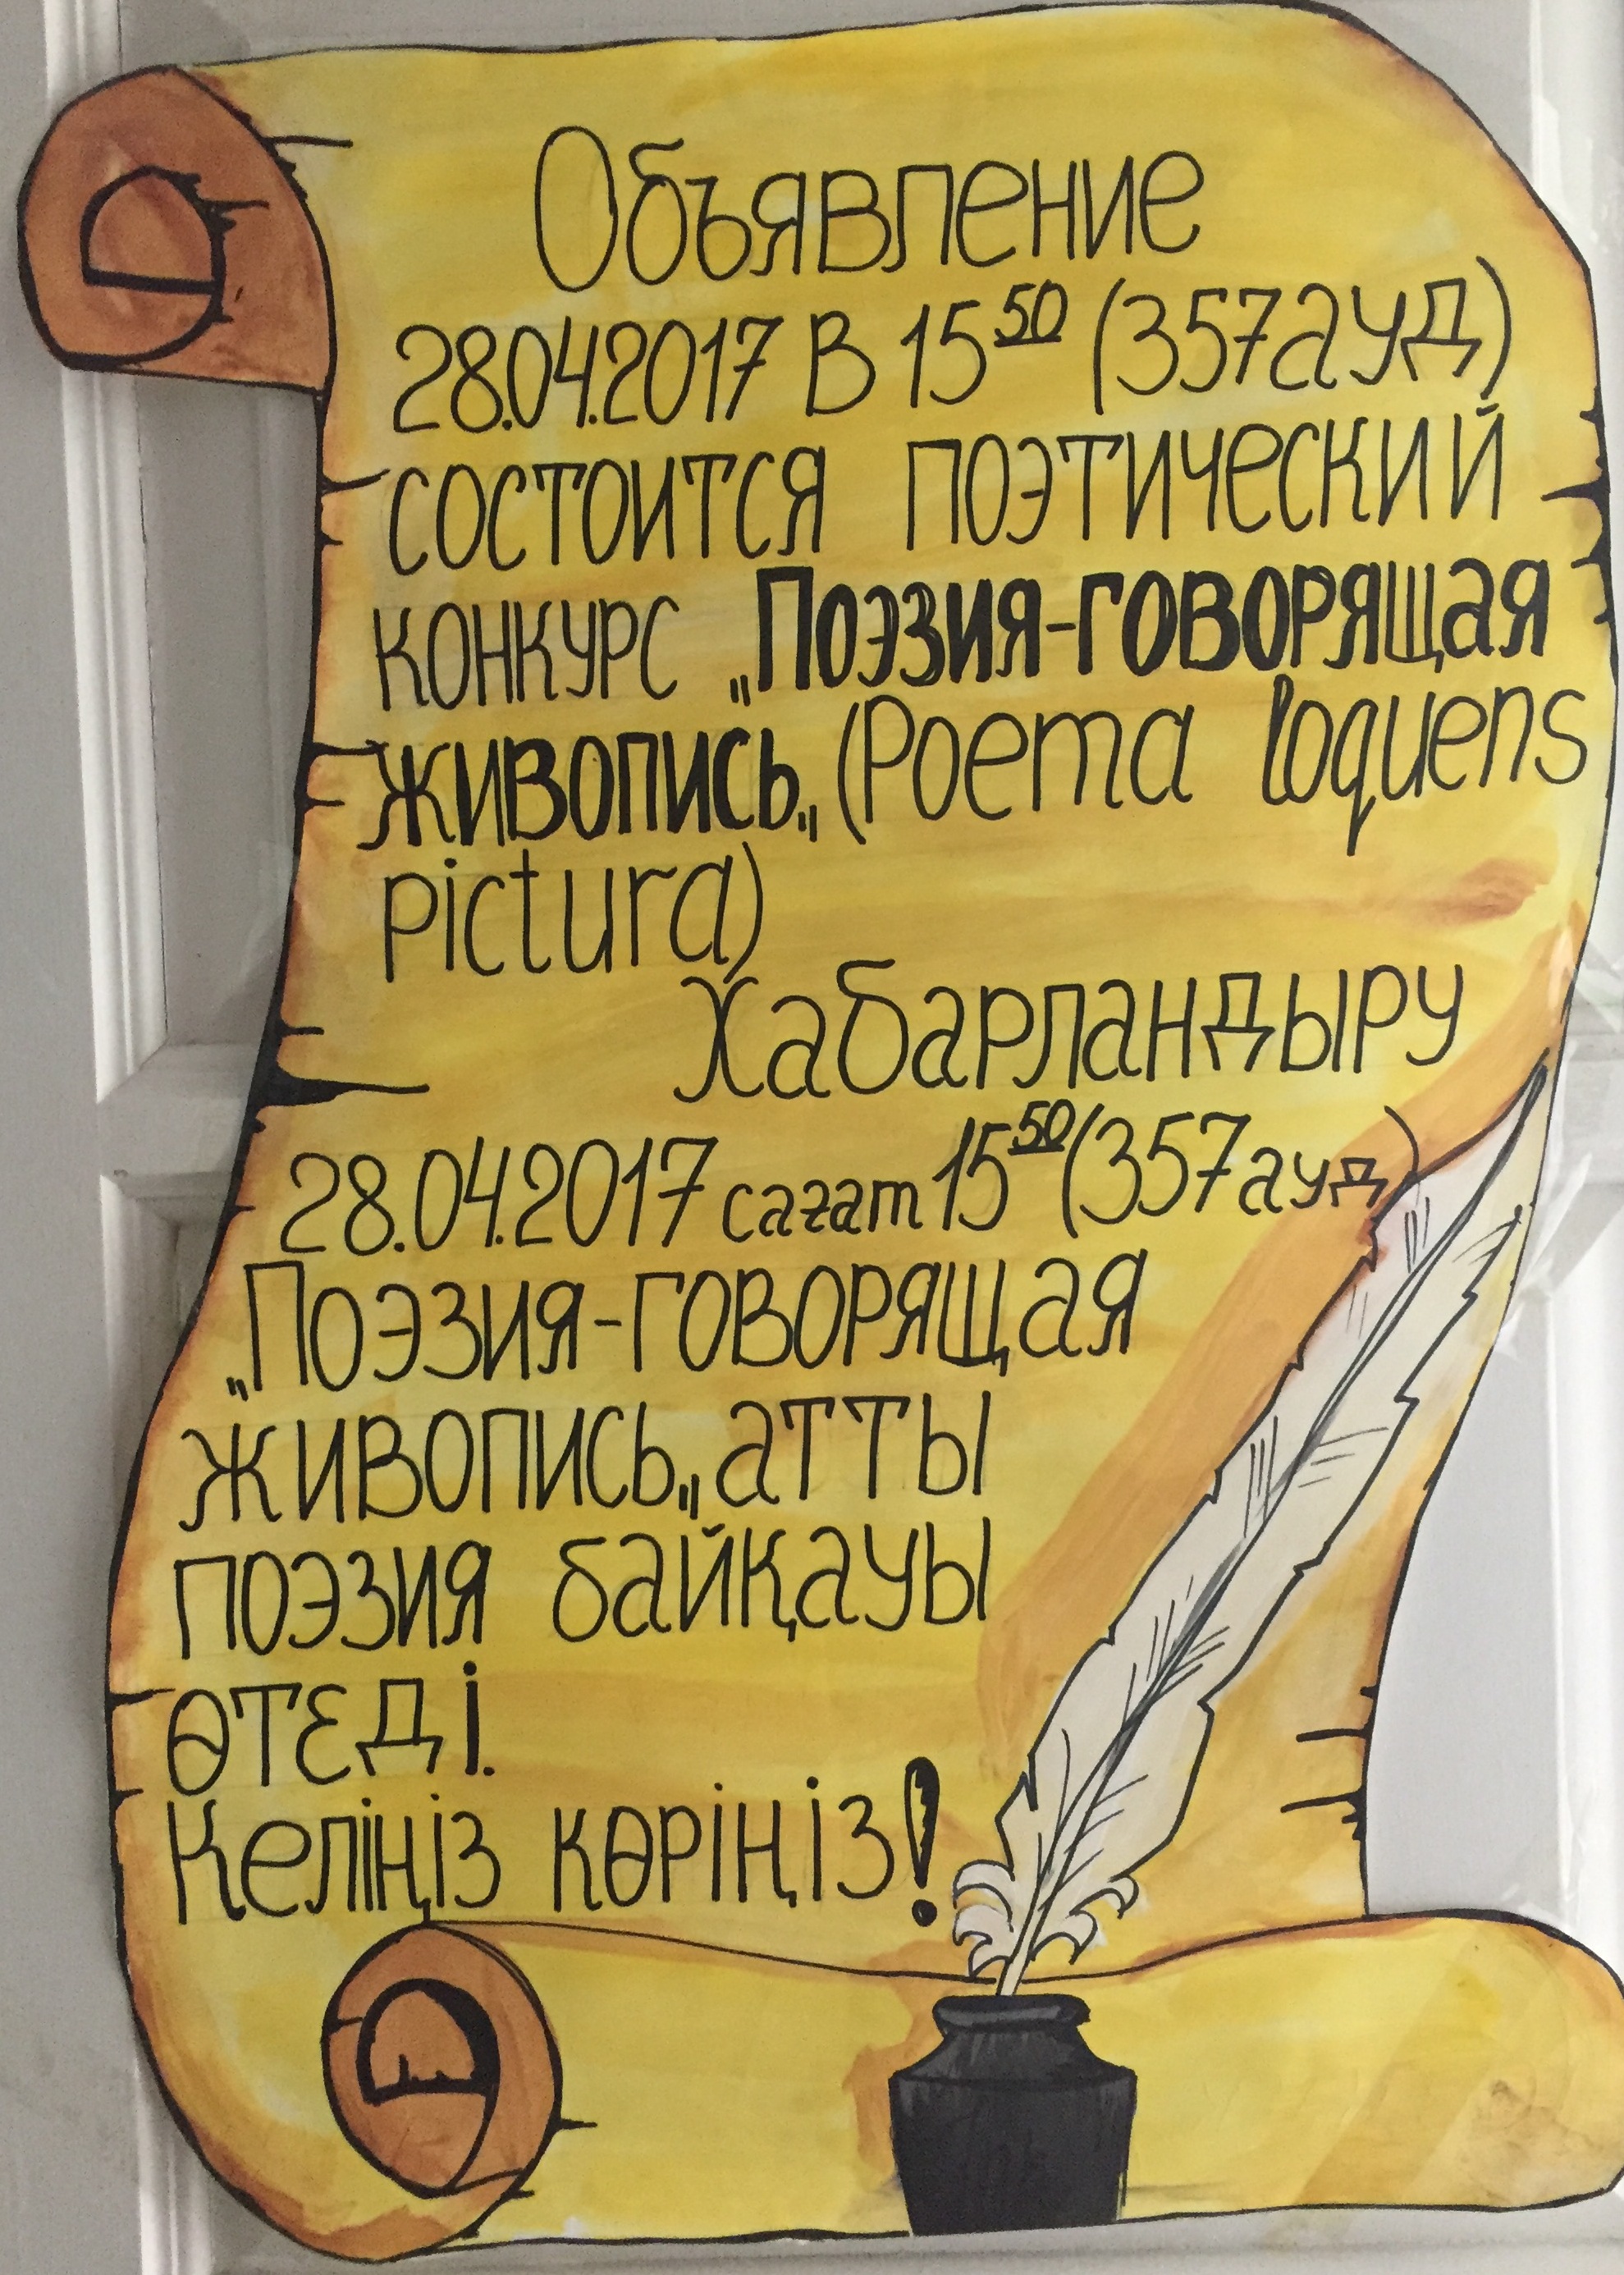 Объявление
28.04.2017 В 15 50 (357ауд)
состоится поэтический
конкурс „Поэзия-говорящая
живопись„ (Poema loquens
pictura)
Хабарландыру
28.04.2017 сағат 15 50 (357ауд)
„Поэзия-говорящая
живопись„ атты
поэзия байқауы
өтеді.
Келіңіз көріңіз!